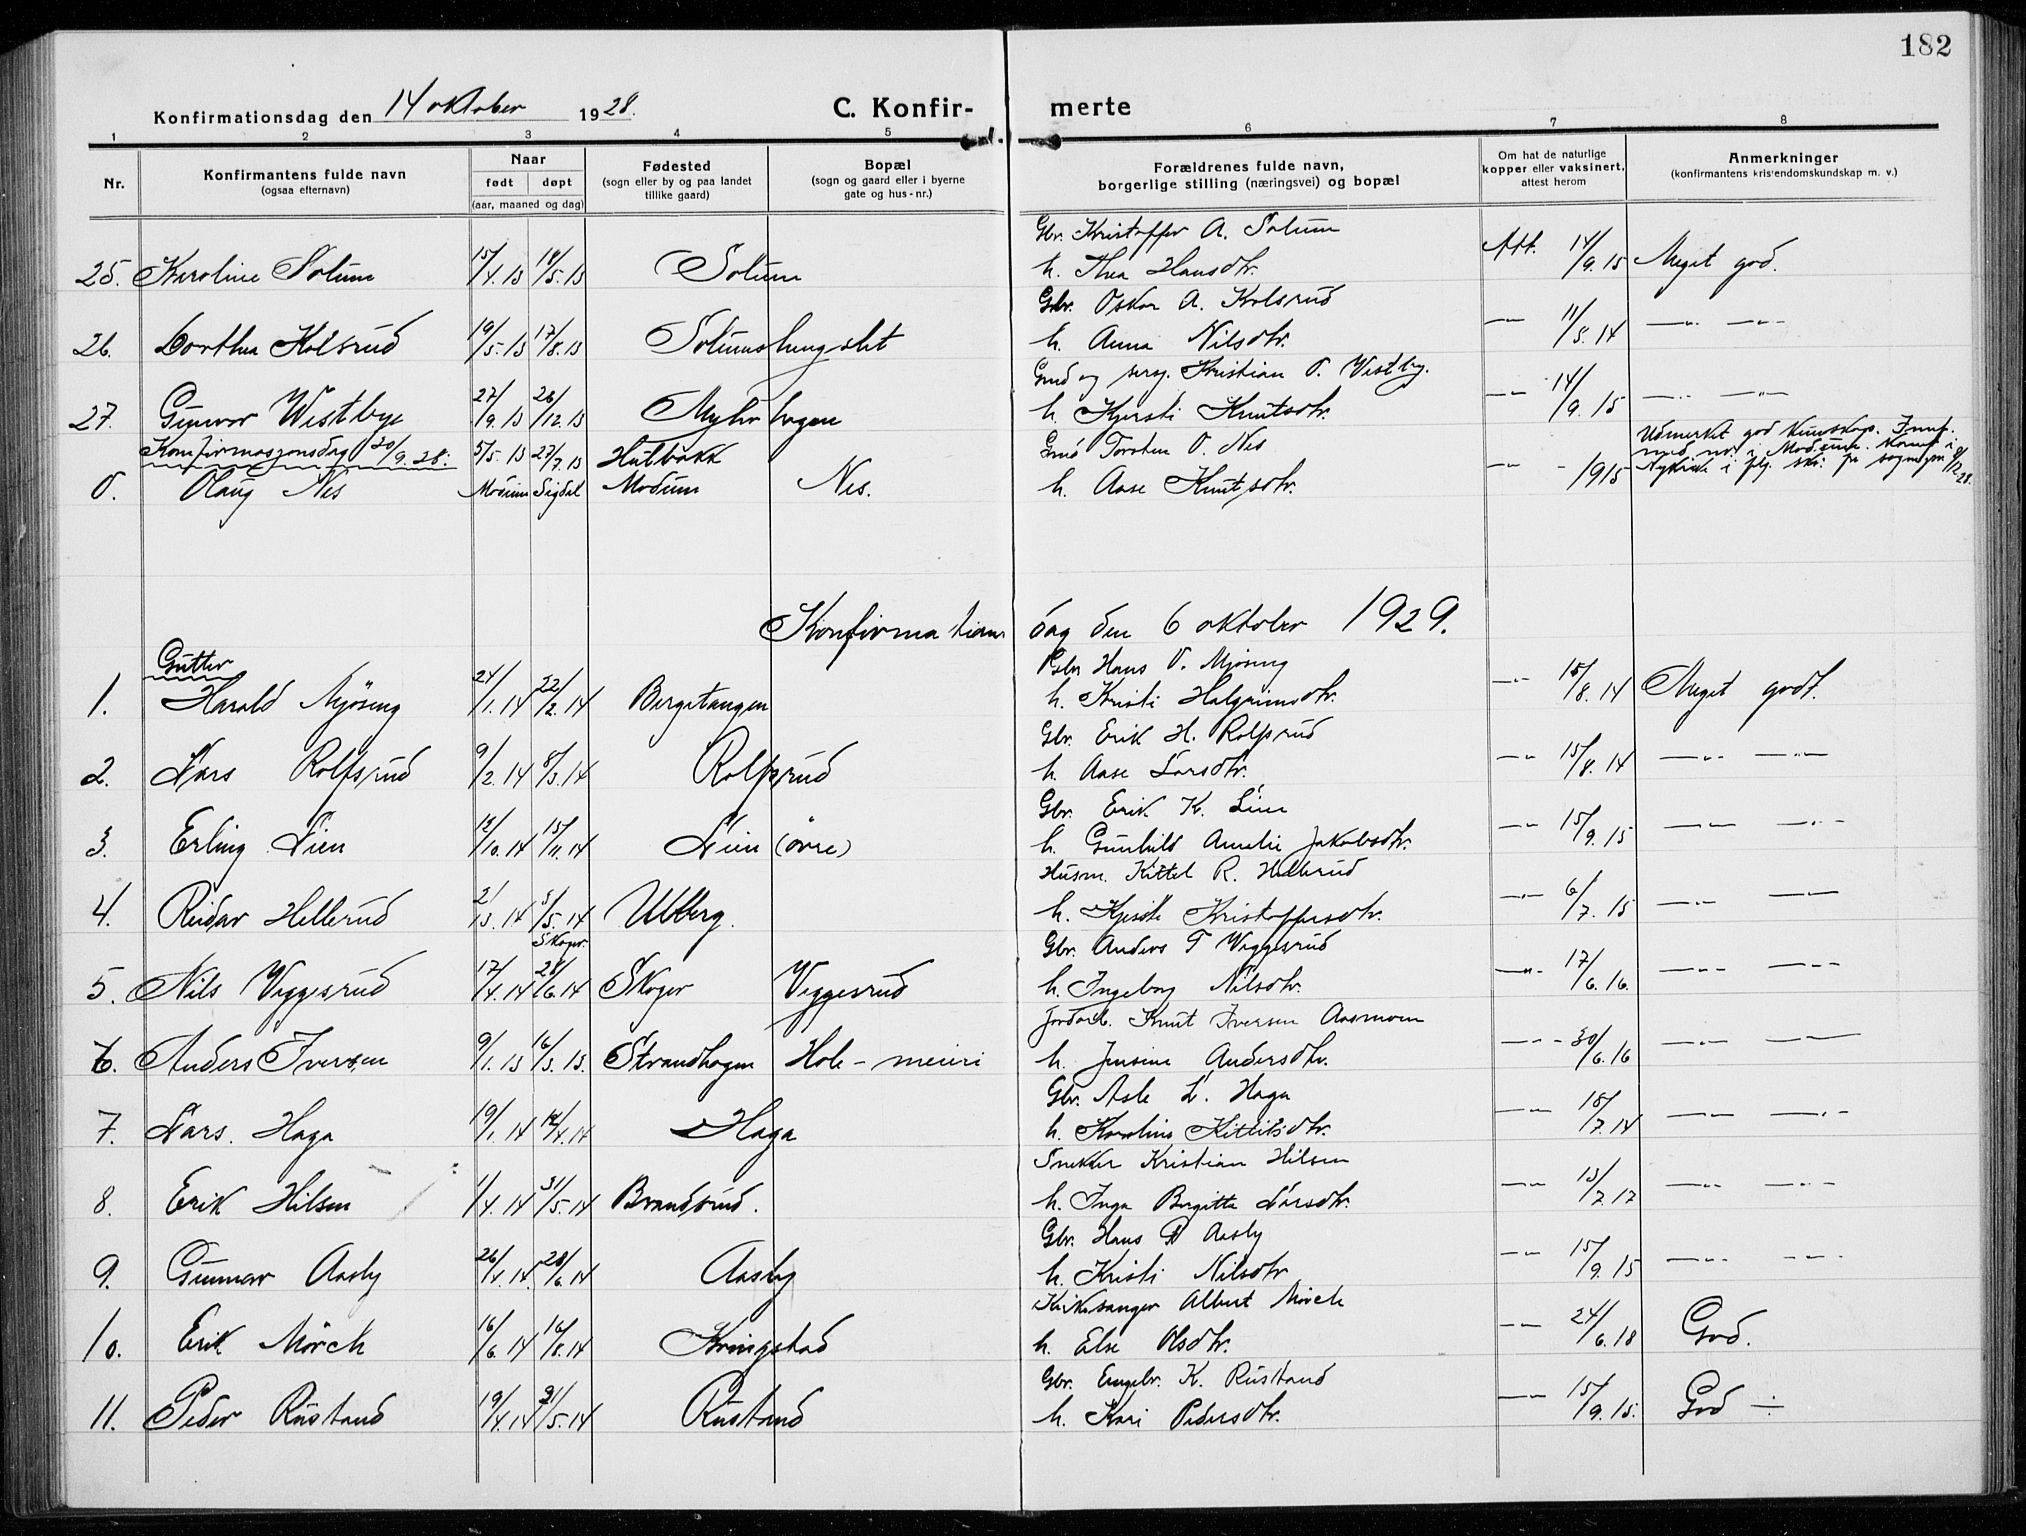 182
Konfirmationsdag den 14 oktober 1928.
C. Konfirmerte
1 2 3 4 5 6 7 8
Nr.
Konfirmantens fulde navn
(ogsaa efternavn)
Naar
født døpt
(aar, maaned og dag)
Fødested
(sogn eller by og paa landet
tillike gaard)
Bopæl
(sogn og gaard eller i byerne
gate og hus-nr.)
Forældrenes fulde navn,
borgerlige stilling (næringsvei) og bopæl
Om hat de naturlige
kopper eller vaksinert,
attest herom
Anmerkninger
(konfirmantens kristendomskundskap m. v.)
Gbr. Kristoffer A. Solum
25. Karoline Solum 15/4.13 14/5.13 Solum h. Thea Hansdtr. Att. 14/9.15 Meget god.
Gbr. Oskar A. Kolsrud
26. Dorthea Kolsrud 19/5.13 17/8.13 Solumshungslet h. Anna Nilsdtr. —"— 11/5.14 —"— —"—
Gmd og serg. Kristian O. Vestby.
27. Gunvor Westbye 27/9.13 26/12.13 h. Kjersti Knutsdtr. —"— 14/9.15 —"— —"—
Konfirmasjonsdag 30/9.28: 5/5.13 27/7.13 Gmd Torsten O. Nes Udmerket god Kunskap.
0. Olaug Nes Modum Sigdal Modum Nes. h. Aase Knutsdtr. —"— 1915
Konfirmationsdag den 6 oktober 1929.
Gutter
Hans O. Mjøseng
1. Harald Mjøseng 24/1.14 22/2.14 Bergstangen h. Kristi Halgrimsdtr. —"— 15/8.14 Meget godt.
Gbr. Erik H. Rolfsrud
2. Lars Rolfsrud 9/2.14 8/3.14 Rolfsrud h. Aase Larsdtr. —"— 15/8.14 —"— —"—
Gbr. Erik K. Lien
3. Erling Lien 12/10.14 15/11.14 Lien (øvre) h. Gunhild Amelie Jakobsdtr. —"— 15/9.15 —"— —"—
Husm. Kittel R. Hellerud
4. Reidar Hellerud 2/3.14 3/5.14 Ulberg. h. Kristoffersdtr. —"— 6/7.15 —"— —"—
Skoger. Gbr. Anders T Viggesrud
5. Nils Viggesrud 17/4.14 28/6.14 Skoger Viggesrud h. Ingeborg Nilsdtr. —"— 17/6.16. —"— —"—
Jordarb. Knut Iversen Aasmoen
6. Anders Iversen 9/1.13 16/3.13. Strandhagen Hole-meieri h. Jensine Andersdtr. —"— 30/6.16 —"— —"—
Gbr. Asle L. Haga
7. Lars. Haga 19/1.14 12/4.14 Haga h. Karoline Kittilsdtr. —"— 18/7.14 —"— —"—
Snekker Kristian Hilsen
8. Erik Hilsen 1/4.14 31/5.14 Brandsrud. h. Inga Birgitte Larsdtr. —"— 13/7.17 —"— —"—
Gbr. Hans Aasby
9. Gunnar Aasby 26/4.14 28/6.14 Aasby h. Kristi Nilsdtr —"— 15/9.15 —"— —"—
Kirkesanger Albert Mørch
10. Erik Mørch 16/6.14 16/8.14 Kringstad h. Else Olsdtr. —"— 24/6.18 God.
Gbr. Engebr. K. Rustand
11. Peder Rustand 19/4.14 31/5.14 Rustand h. Kari Pedersdtr. —"— 15/9.15. God ÷